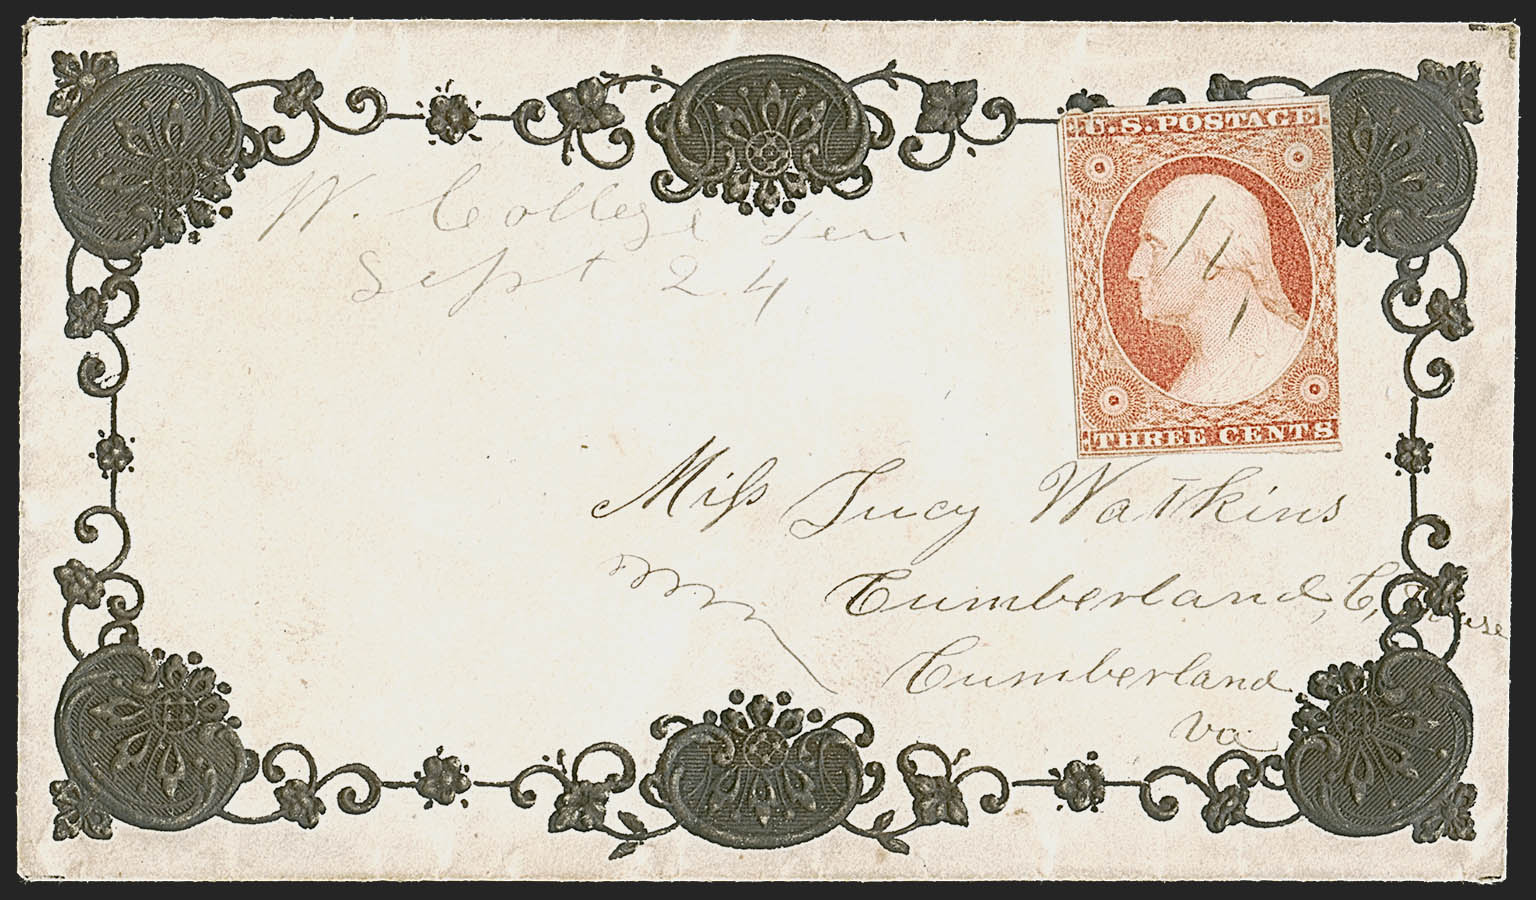 U.S. POSTAGE
W. College Ten
Sept 24
THREE CENTS
Miss Lucy Watkins
Cumberland, C, House
Cumberland
Va